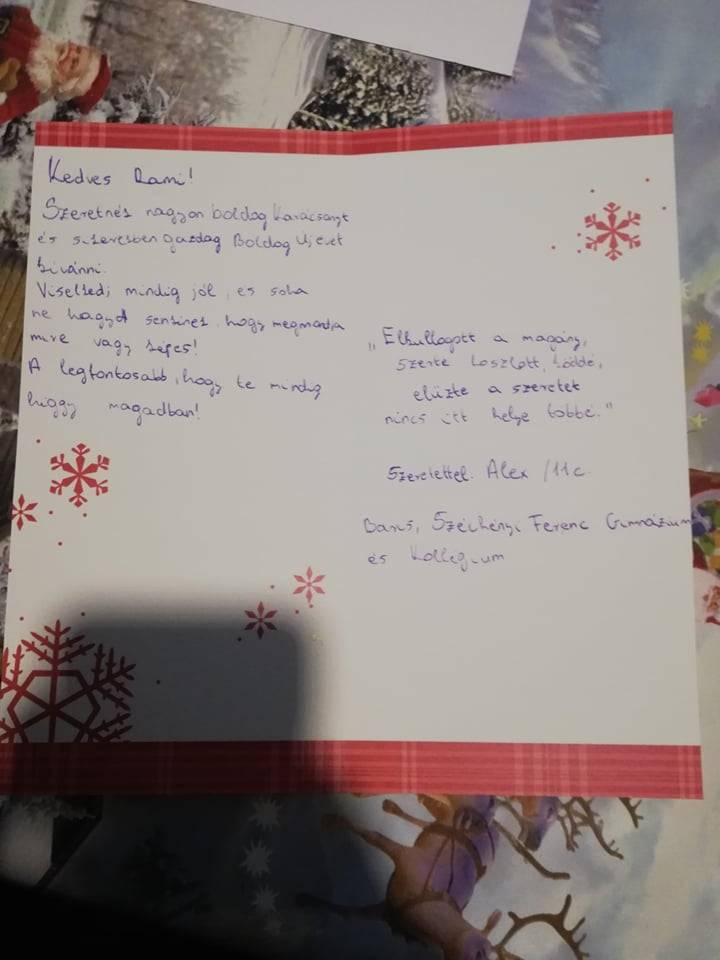 Kedves Dani!
Szeretnék nagyon boldog karácsonyt
és sikerekben gazdag Boldog Új évet
kívánni.
Viselkedj mindig jól, és soha
ne hagyd senkinek, hogy megmondja
mire vagy képes!
A legfontosabb, hogy te mindig
higgy magadban!
„Elbullagott a magány,
szerte foszlott, köddé,
elűzte a szeretet
nincs itt helye többé."
Szeretettel: Alex /11c.
Barcs, Széchényi Ferenc Gimnázium
és Kollégium